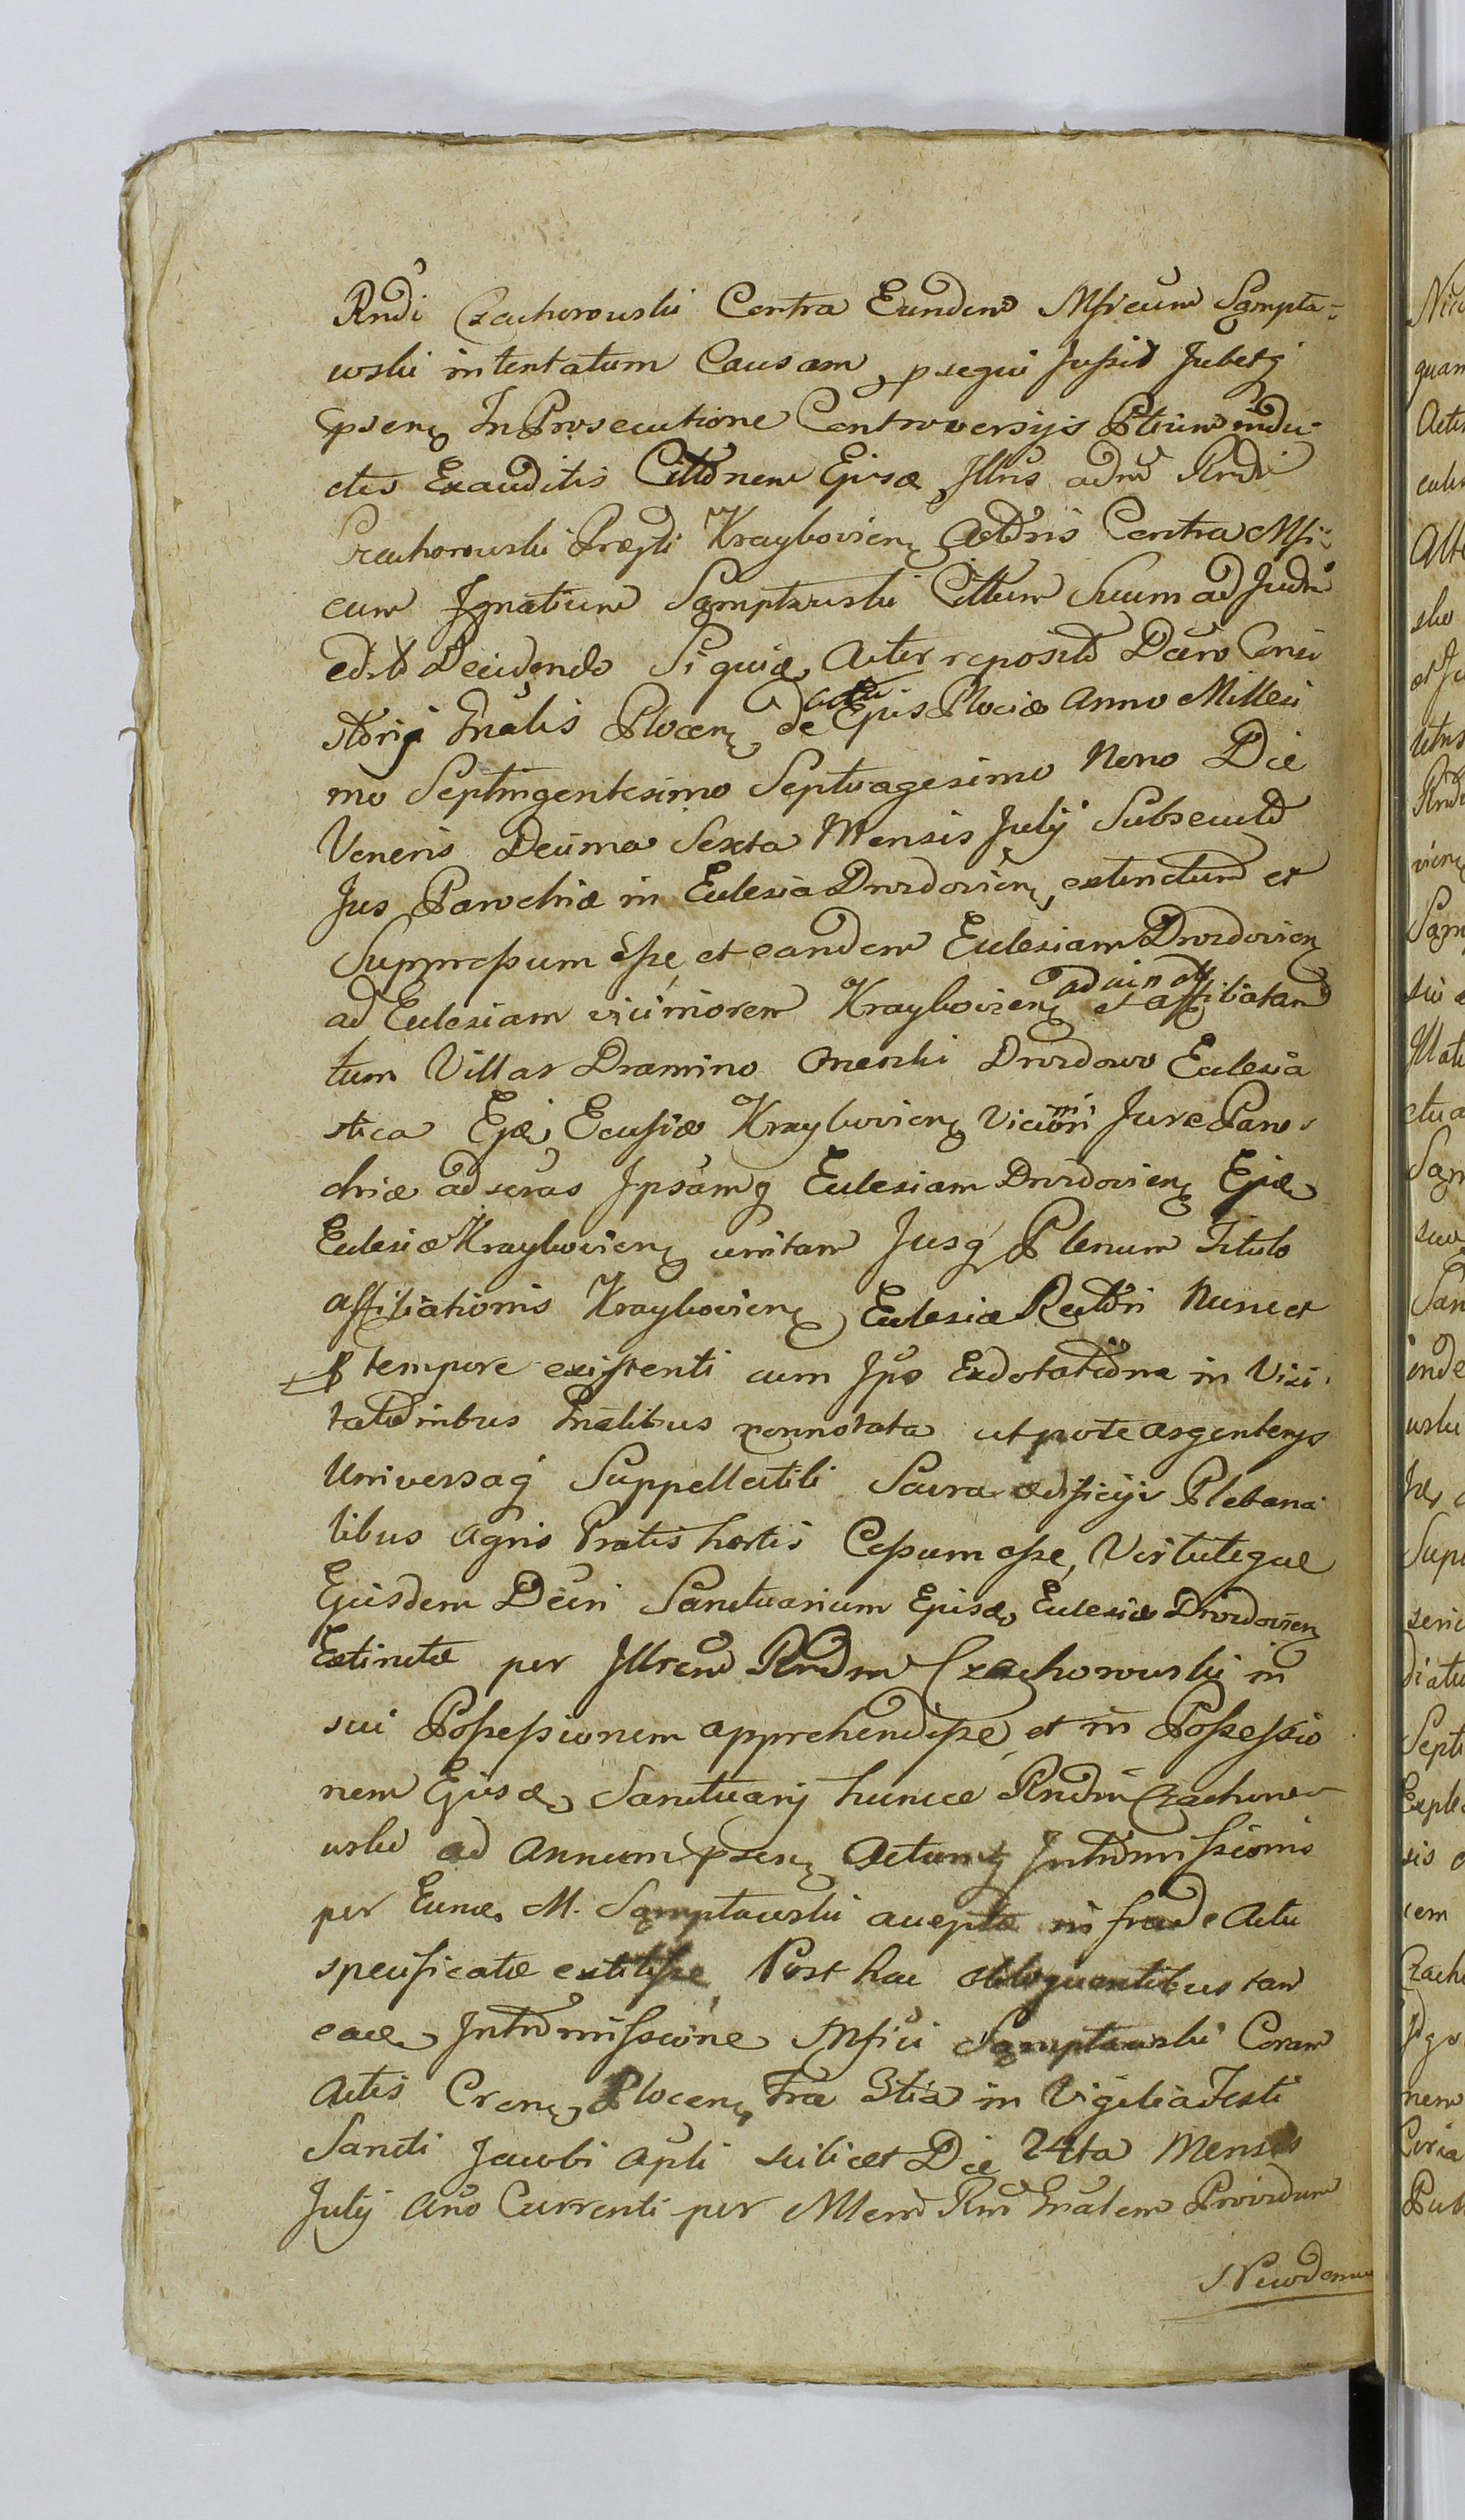 Rndi Czachorowski Contra Eundem Mficum Sąmpta-
wski intentatum Causam, psequi Jussit Jubetq
psen. In Prosecutione Controversijs Ptium indu-
ctis Exauditis Cittõnem Ejusdæ Jllris adm Rndi
Czachorowski Præpti Kraykovien. Actoris Contra Mfi-
cum Ignatium Sąmptawski Cittum Suum ad Judm
edito Decidendo Si quidæ Acter reposito Decro Consi
storij Gnalis Plocen. de actu Epis Plociæ Anno Millesi
mo Septingentesimo Septuagesimo Nono Die
Veneris Decima Sexta Mensis Julij Subsecuto
Jus Parochiæ in Eclesia Drozdovien. extinctum et
Suppressum esse, et eandem Eclesiam Drozdovien.
ad Eclesiam viciniorem Kraykovien. aduin et affiliatam
tum Villas Dramino Meszki Drozdowo Eclesia
stica Ejdæ Eccłsiæ Kraykovien. Viciniori Jure Paro-
chiæ adscras Jpsamq Eclesiam Drozdovien. Ejdæ
Eclesiæ Kraykovien. unitam Jusq Plenum Titulo
affiliationis Kraykovien. Eclesiæ Rectori Nunc et
p tempore existenti cum Jps Exdotatione in Visi-
tationibus Gnalibus connotata utpote argentenys
Universaq Suppellectili Sacra ædificijs Plebana
libus Agris Pratis hortis Cessum esse, Virtuteque
Ejusdem Decri Sanctuarium Ejusdæ Eclesiæ Drozdovien.
Extinctæ per Jllrem Rndm Czachorowski in
sui Possessionem apprehendisse, et in Possessio
nem Ejusdæ Sanctuarij huncce Rndm Czachoro-
wski ad Annum psen. Actumq Intromissionis
per Eundæ M. Sąmptawski acceptæ in fraude Actu
specificatæ extitisse, Post hac obloquentibus tam
eade Intromissione Mfici Sąmptawski Coram
Actis Cren. Plocen. Fra 3tia in Vigilia Festi
Sancti Jacobi Apli scilicet Die 24ta Mensis
Julij Ano Currenti per Mtem Rm Gnalem Providum
Nicodemum